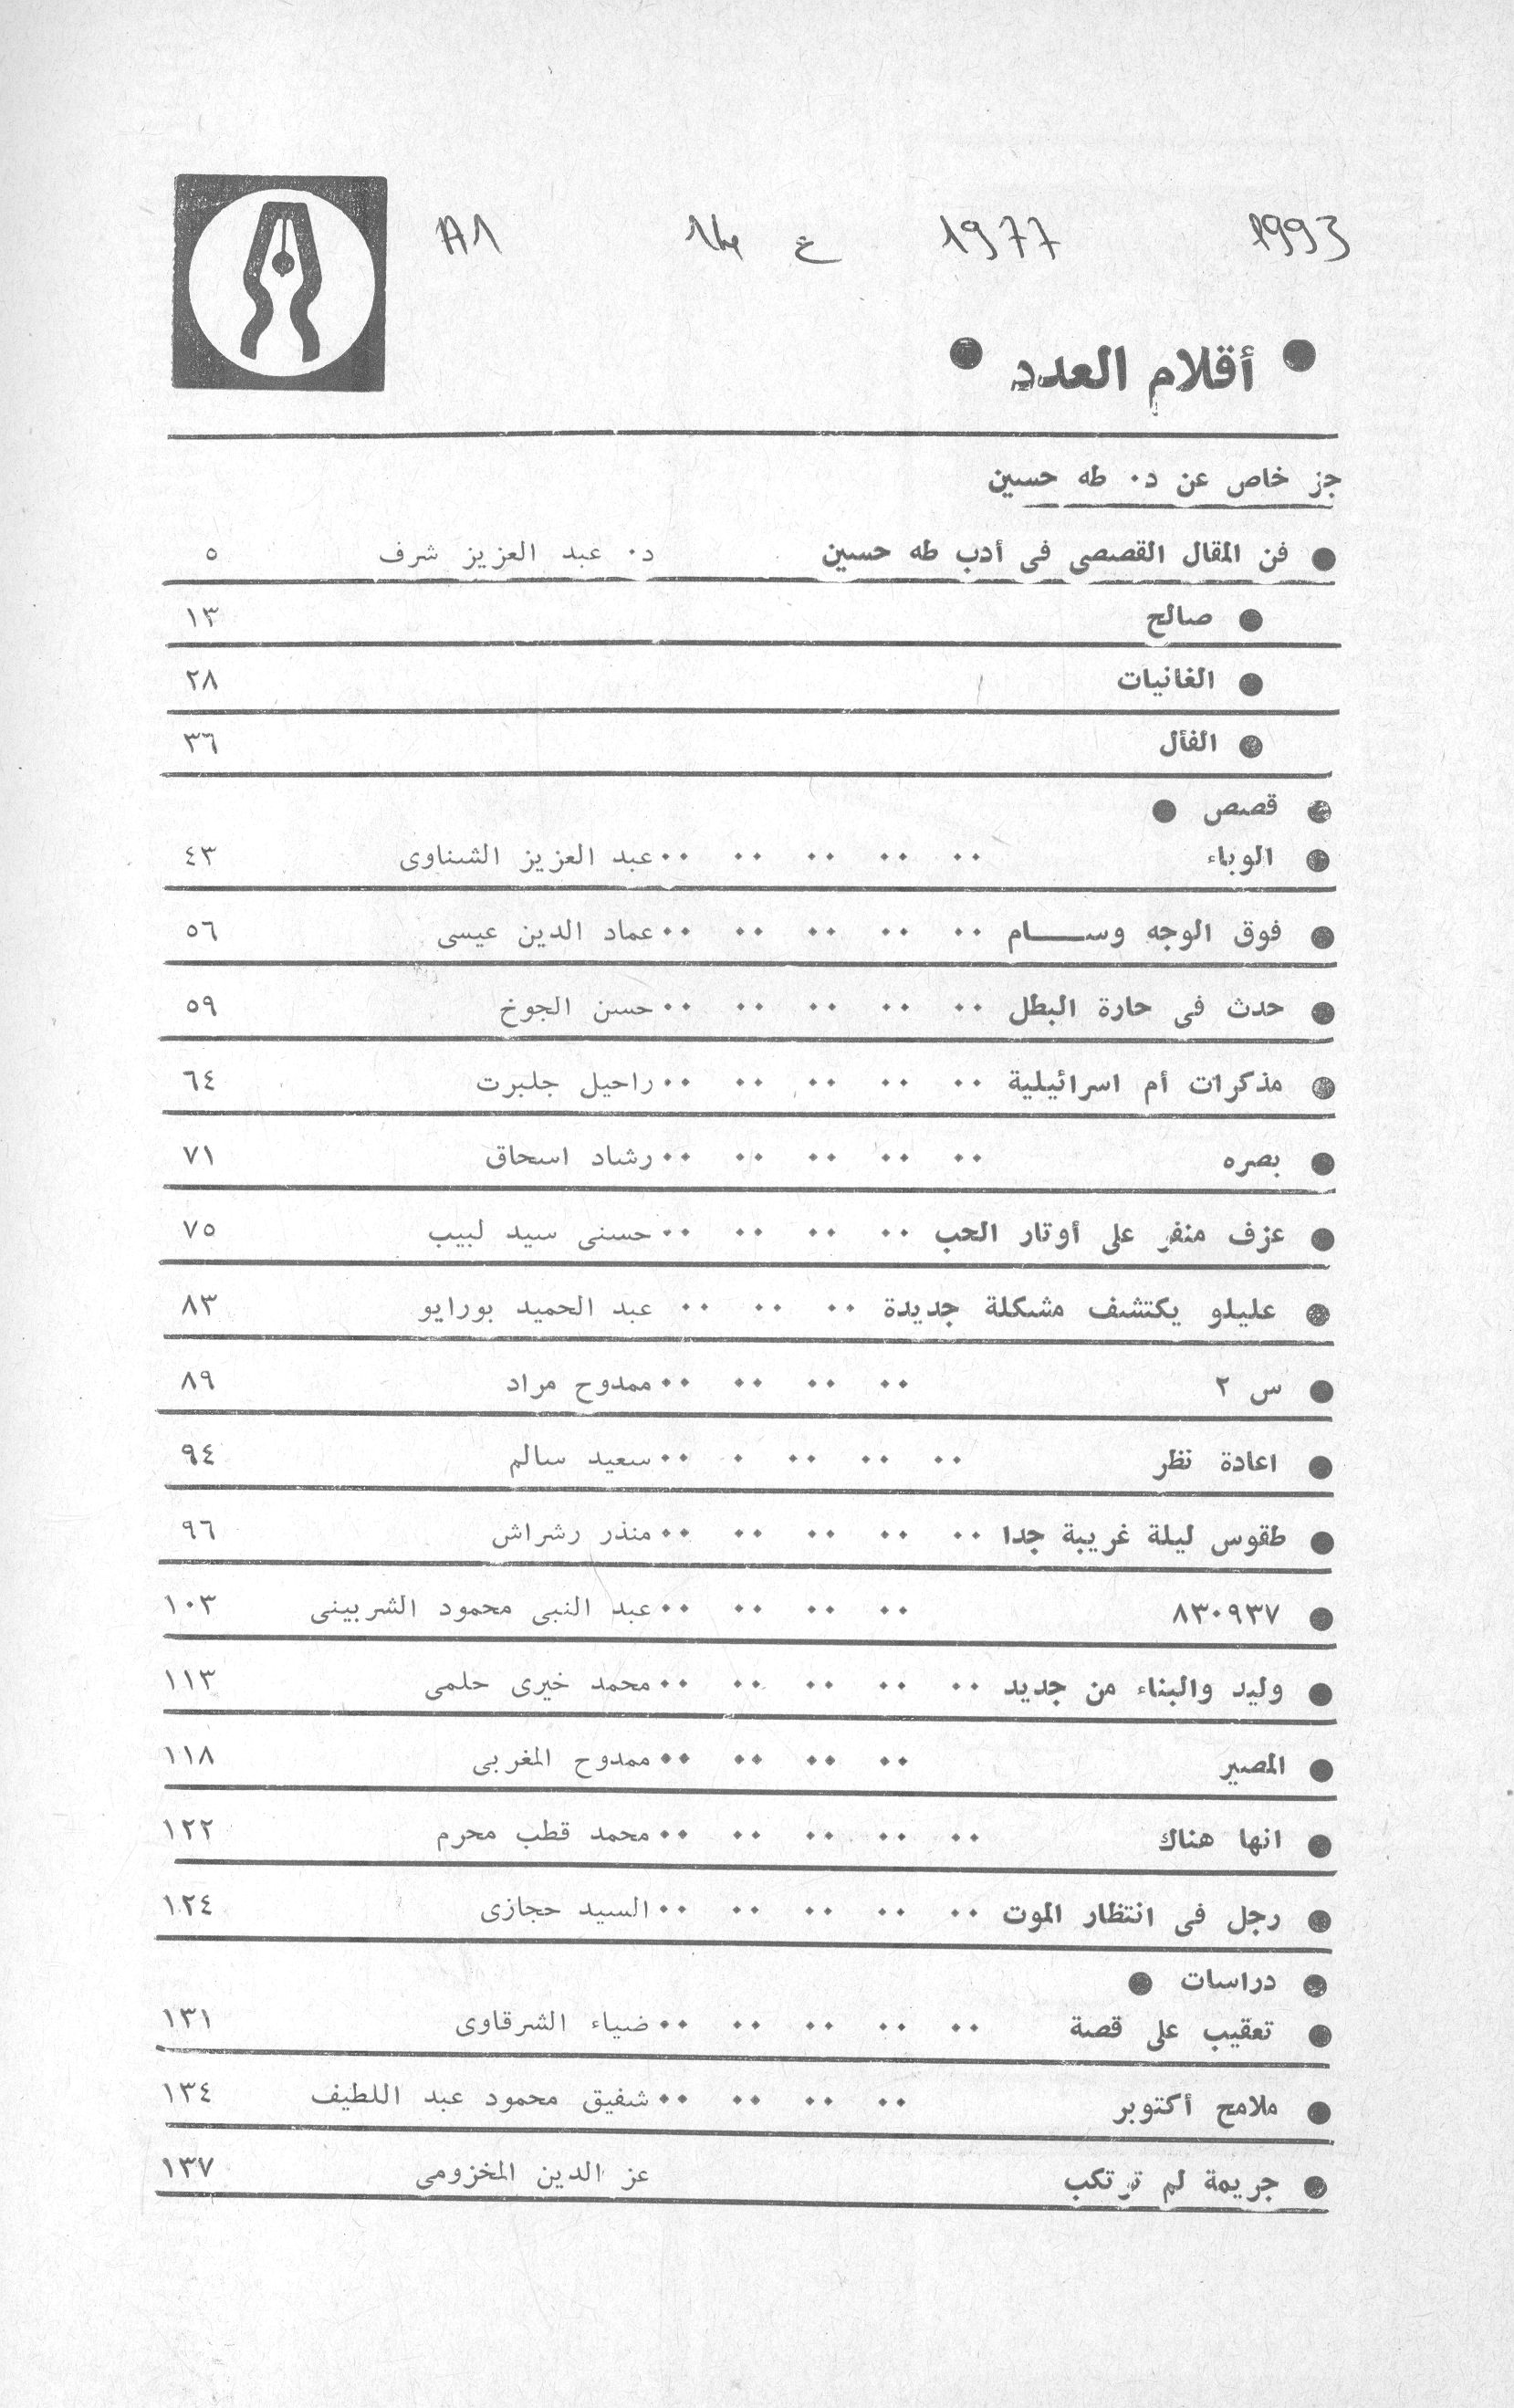 1993 1977 ع
• أقلام العدد •
جز خاص عن د. طه حسين
● فن المقال القصصى فى أدب طه حسين د. عبد العزيز شرف ٥
● صالح ١٣
● الغانيات ٢٨
● الفأل ٣٦
● قصص ●
● الوباء .. .. .. .. .. عبد العزيز الشناوى ٤٣
● فوق الوجه وســـــام .. .. .. .. .. عماد الدين عيسى ٥٦
● حدث فى حارة البطل .. .. .. .. .. حسن الجوخ ٥٩
● مذكرات أم اسرائيلية .. .. .. .. .. راحيل جلبرت ٦٤
● بصره .. .. .. .. .. رشاد اسحاق ٧١
● عزف منفر على أوتار الحب .. .. .. .. حسنى سيد لبيب ٧٥
● عليلو يكتشف مشكلة جديدة .. .. .. عبد الحميد بورايو ٨٣
● س ٢ .. .. .. .. ممدوح مراد ٨٩
● اعادة نظر .. .. .. . .. سعيد سالم ٩٤
● طقوس ليلة غريبة جدا .. .. .. .. .. منذر رشراش ٩٦
● ٨٣٠٩٣٧ .. .. .. .. عبد النبى محمود الشربينى ١٠٣
● وليد والبناء من جديد .. .. .. .. .. محمد خيرى حلمى ١١٣
● المصير .. .. .. .. ممدوح المغربى ١١٨
● انها هناك .. .. .. .. .. محمد قطب محرم ١٢٢
● رجل فى انتظار الموت .. .. .. .. .. السيد حجازى ١٢٤
● دراسات ●
● تعقيب على قصة .. .. .. .. .. ضياء الشرقاوى ١٣١
● ملامح أكتوبر .. .. .. .. شفيق محمود عبد اللطيف ١٣٤
● جريمة لم ترتكب عز الدين المخزومى ١٣٧